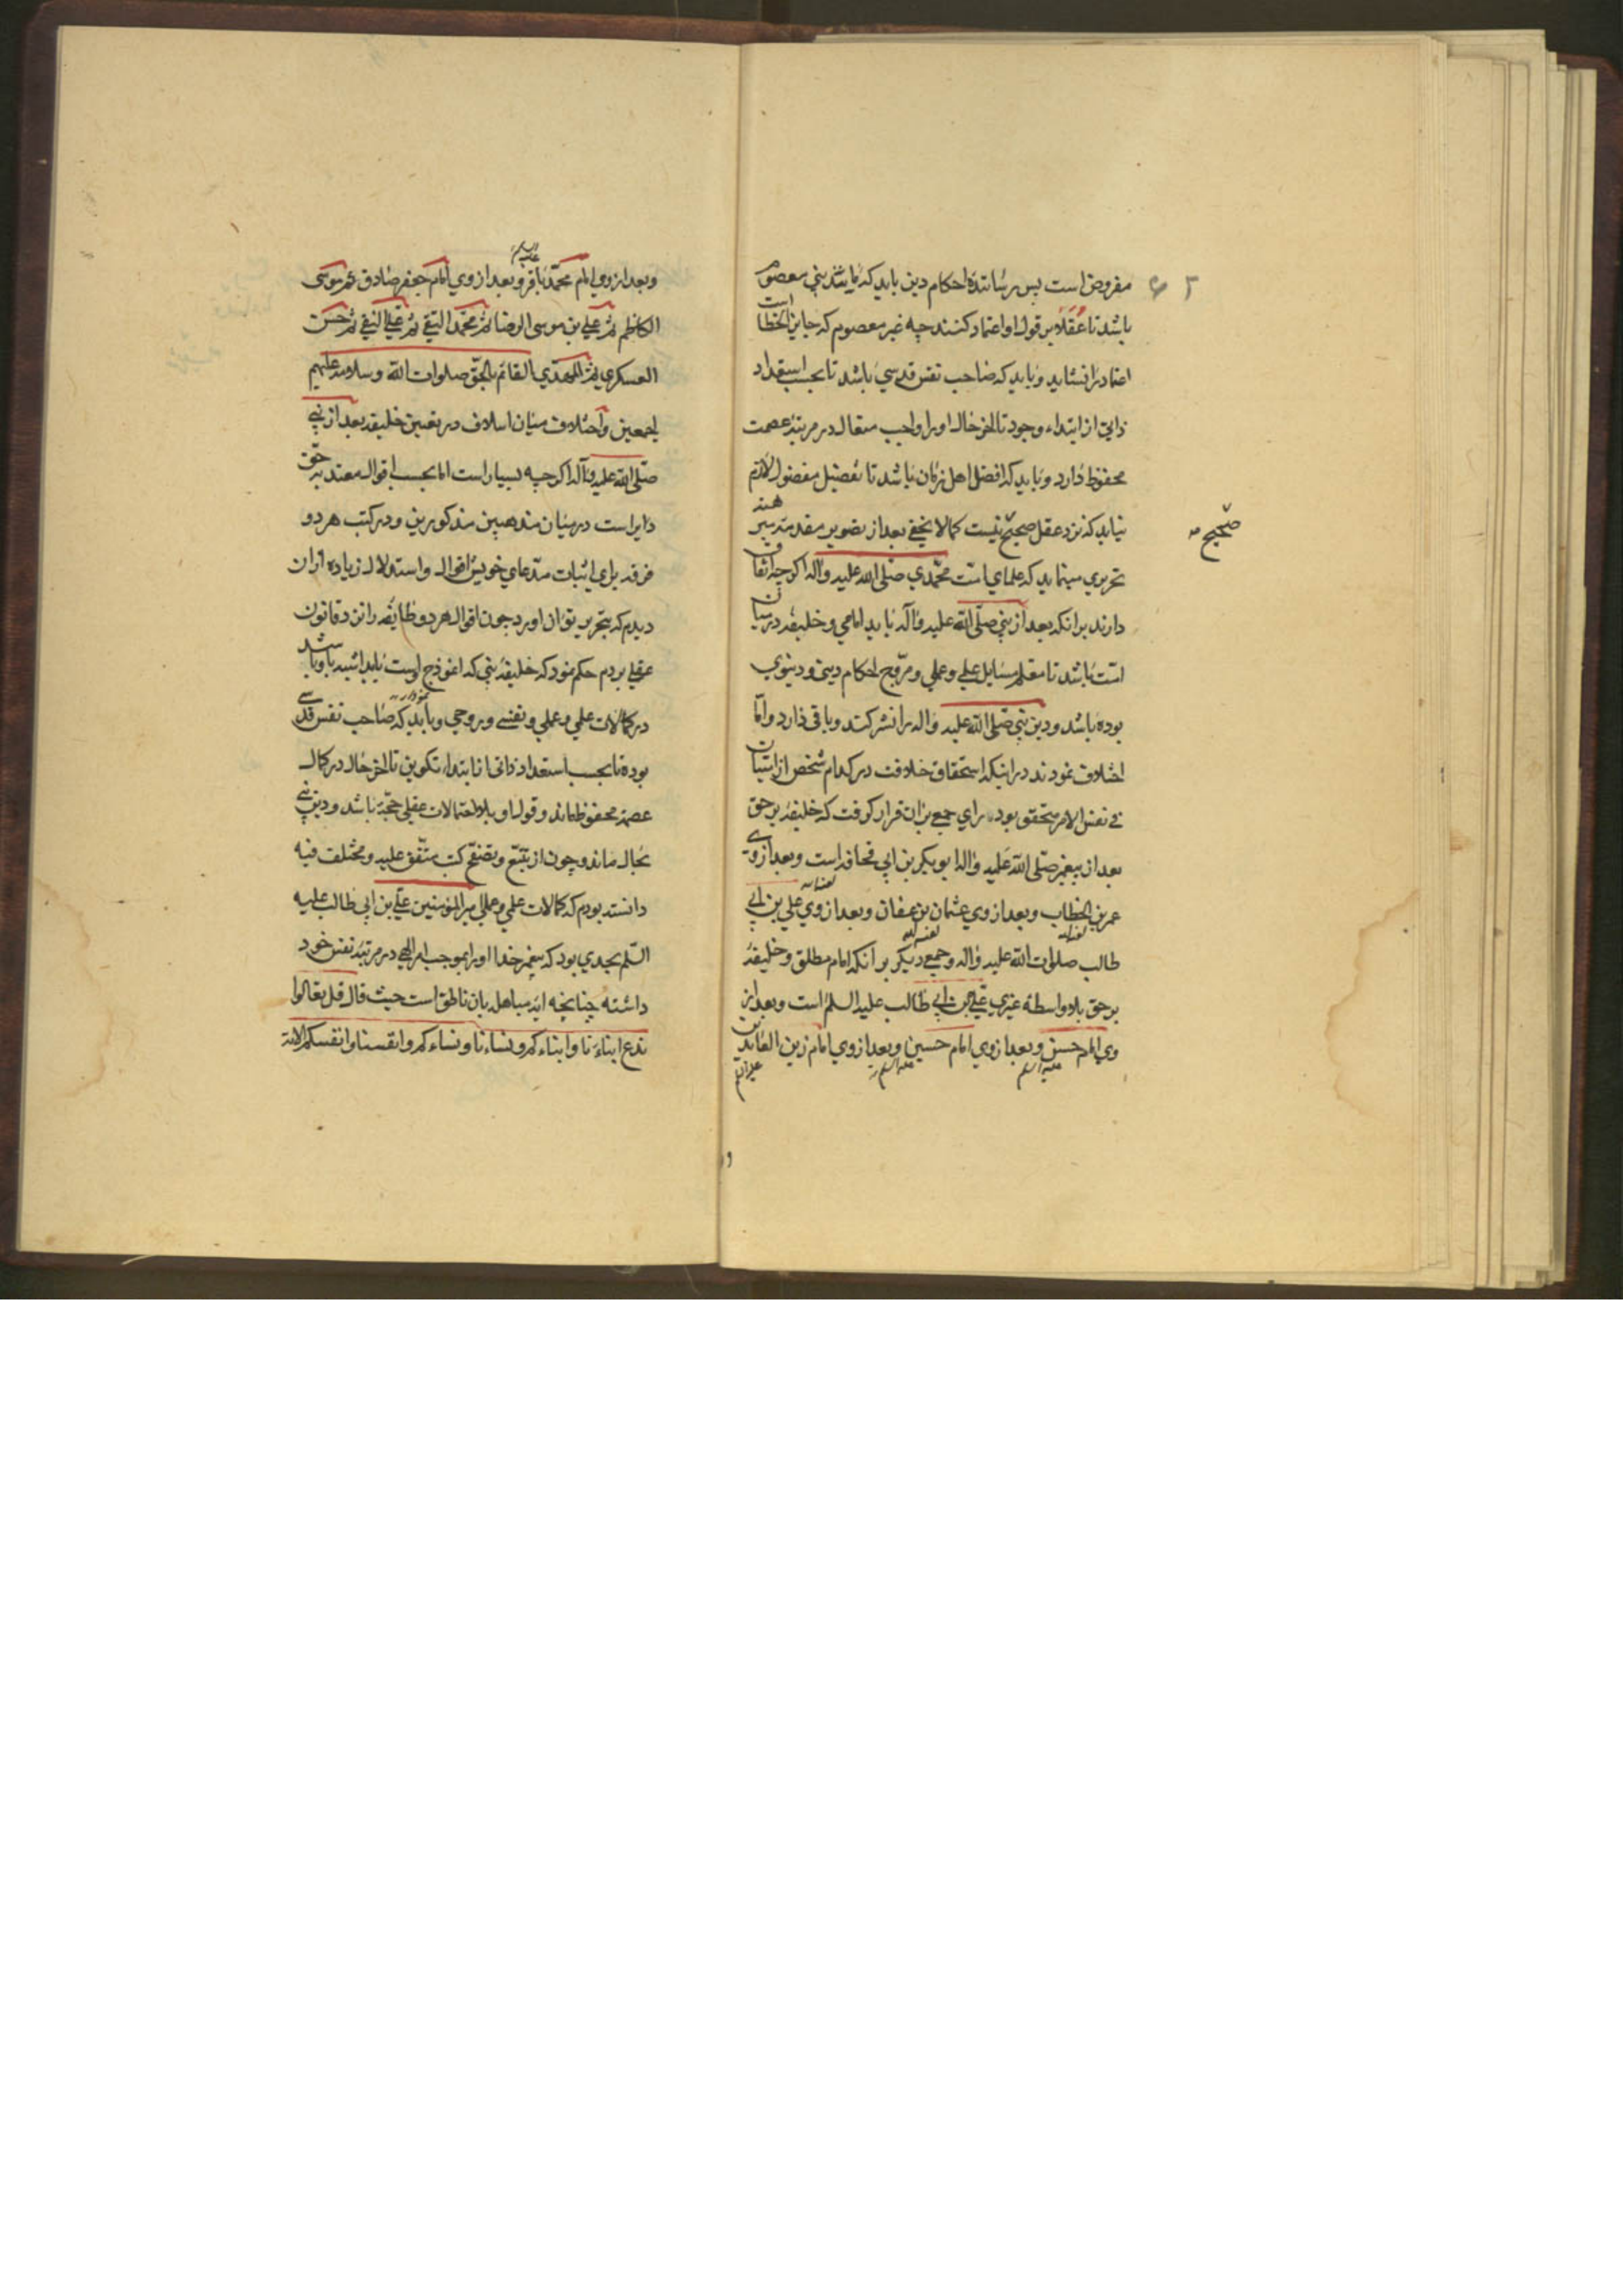 مفروض است پس رسانندهٔ احکام دین باید که مانند نبی معصوم
باشد تا عقلا بر قول او اعتماد کنند چه غیر معصوم که جایز الخطا است
اعتماد را نشاید و باید که صاحب نفس قدسی باشد تا بحسب استعداد
ذاتی از ابتداء وجود تا آخر حال او را واجب متعال در مرتبهٔ عصمت
محفوظ دارد و باید که افضل اهل زمان باشد تا تفضیل مفضول لازم
نیاید که نزد عقل صحیح نیست کما لا یخفی بعد از تصویر مقدمه
صحیح
تحریر می‌نماید که علمای امت محمّدی صلّی الله علیه وآله اگر چه اتفاق
دارند بر آنکه بعد از نبی صلّی الله علیه وآله باید امامی و خلیفه در میان
امّت باشد تا معلم مسایل علمی و عملی و مروّج احکام دینی و دنیوی
بوده باشد و دین نبی صلّی الله علیه وآله را نشر کند و باقی دارد و امّا
اختلاف نمودند در اینکه استحقاق خلافت در کدام شخص از ایشان
فی نفس الامر متحقق بود رای جمعی بر آن قرار گرفت که خلیفهٔ بر حق
بعد از پیغمبر صلّی الله علیه وآله ابو بکر بن ابی قحافه است و بعد از وی
عمر بن الخطاب و بعد از وی عثمان بن عفان و بعد از وی علی بن ابی
طالب صلوات الله علیه وآله و جمعی دیگر بر آنکه امام مطلق و خلیفهٔ
بر حق بلا واسطه غیری علی بن ابی طالب علیه السلم است و بعد از
وی امام حسن و بعد از وی امام حسین و بعد از وی امام زین العابدین
علیه السلم علیه السلم علیه السلم
و
وبعد از وی امام محمّد باقر و بعد از وی امام جعفر صادق ثم موسی
الکاظم ثم علی بن موسی الرضا ثم محمّد التقی ثم علی النقی ثم حسن
العسکری ثم المهدی القائم بالحقّ صلوات الله وسلامه علیهم
اجمعین و اختلاف میان اسلاف در تعیین خلیفه بعد از نبی
صلّی الله علیه وآله اگر چه بسیار است اما بحسب اقوال معتد بر حق
دایر است در میان مذهبین مذکورین و در کتب هر دو
فرقه برای اثبات مدّعای خویش اقوال و استدلال زیاده از آن
دیدم که بتحریر توان آورد چون اقوال هر دو طایفه را نزد قانون
عقلی بردم حکم نمود که خلیفه نبی که انموذج اوست باید اشبه باو باشد
در کمالات علمی و عملی و نفسی و روحی و باید که صاحب نفس قدسی
بوده تا بحسب استعداد ذاتی از ابتداء تکوین تا آخر حال در کمال
عصمة محفوظ ماند و قول او بلا احتمالات عقلی حجّة باشد و دین نبی
بحال ماند و چون از تتبّع و تصفّح کتب متّفق علیه و مختلف فیه
دانسته بودم که کمالات علمی و عملی امیر المؤمنین علی بن ابی طالب علیه
السّلم بحدی بود که پیغمبر خدا او را بموجب امر الهی در مرتبهٔ نفس خود
داشته چنانچه ایه مباهله بان ناطق است حیث قال قل تعالوا
ندع ابناءنا وابناءکم ونساءنا ونساءکم وانفسنا وانفسکم الآیة